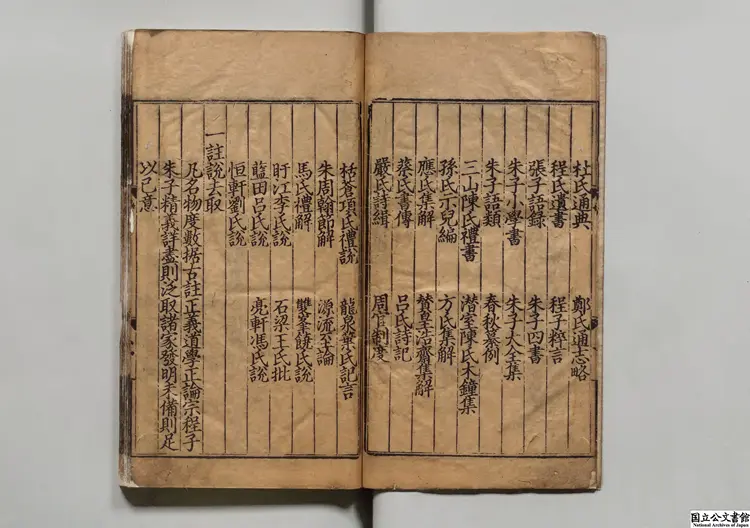 杜氏通典 鄭氏通志略
程氏遺書 程子粹言
張子語錄 朱子四書
朱子小學書 朱子大全集
朱子語類 春秋纂例
三山陳氏禮書 潛室陳氏木鐘集
孫氏示兒編 方氏集解
應氏集解 贊皇浩齋集解
蔡氏書傳 呂氏詩記
嚴氏詩緝 周官制度
栝蒼項氏禮說 龍泉葉氏記言
朱周翰節解 源流至論
馬氏禮解 雙峯饒氏說
盱江李氏說 石梁王氏批
藍田呂氏說 亮軒馮氏說
恒軒劉氏說
一註說去取
凡名物度數据古註正義道學正論宗程子
朱子精義詳盡則泛取諸家發明未備則足
以己意
国立公文書館
National Archives of Japan